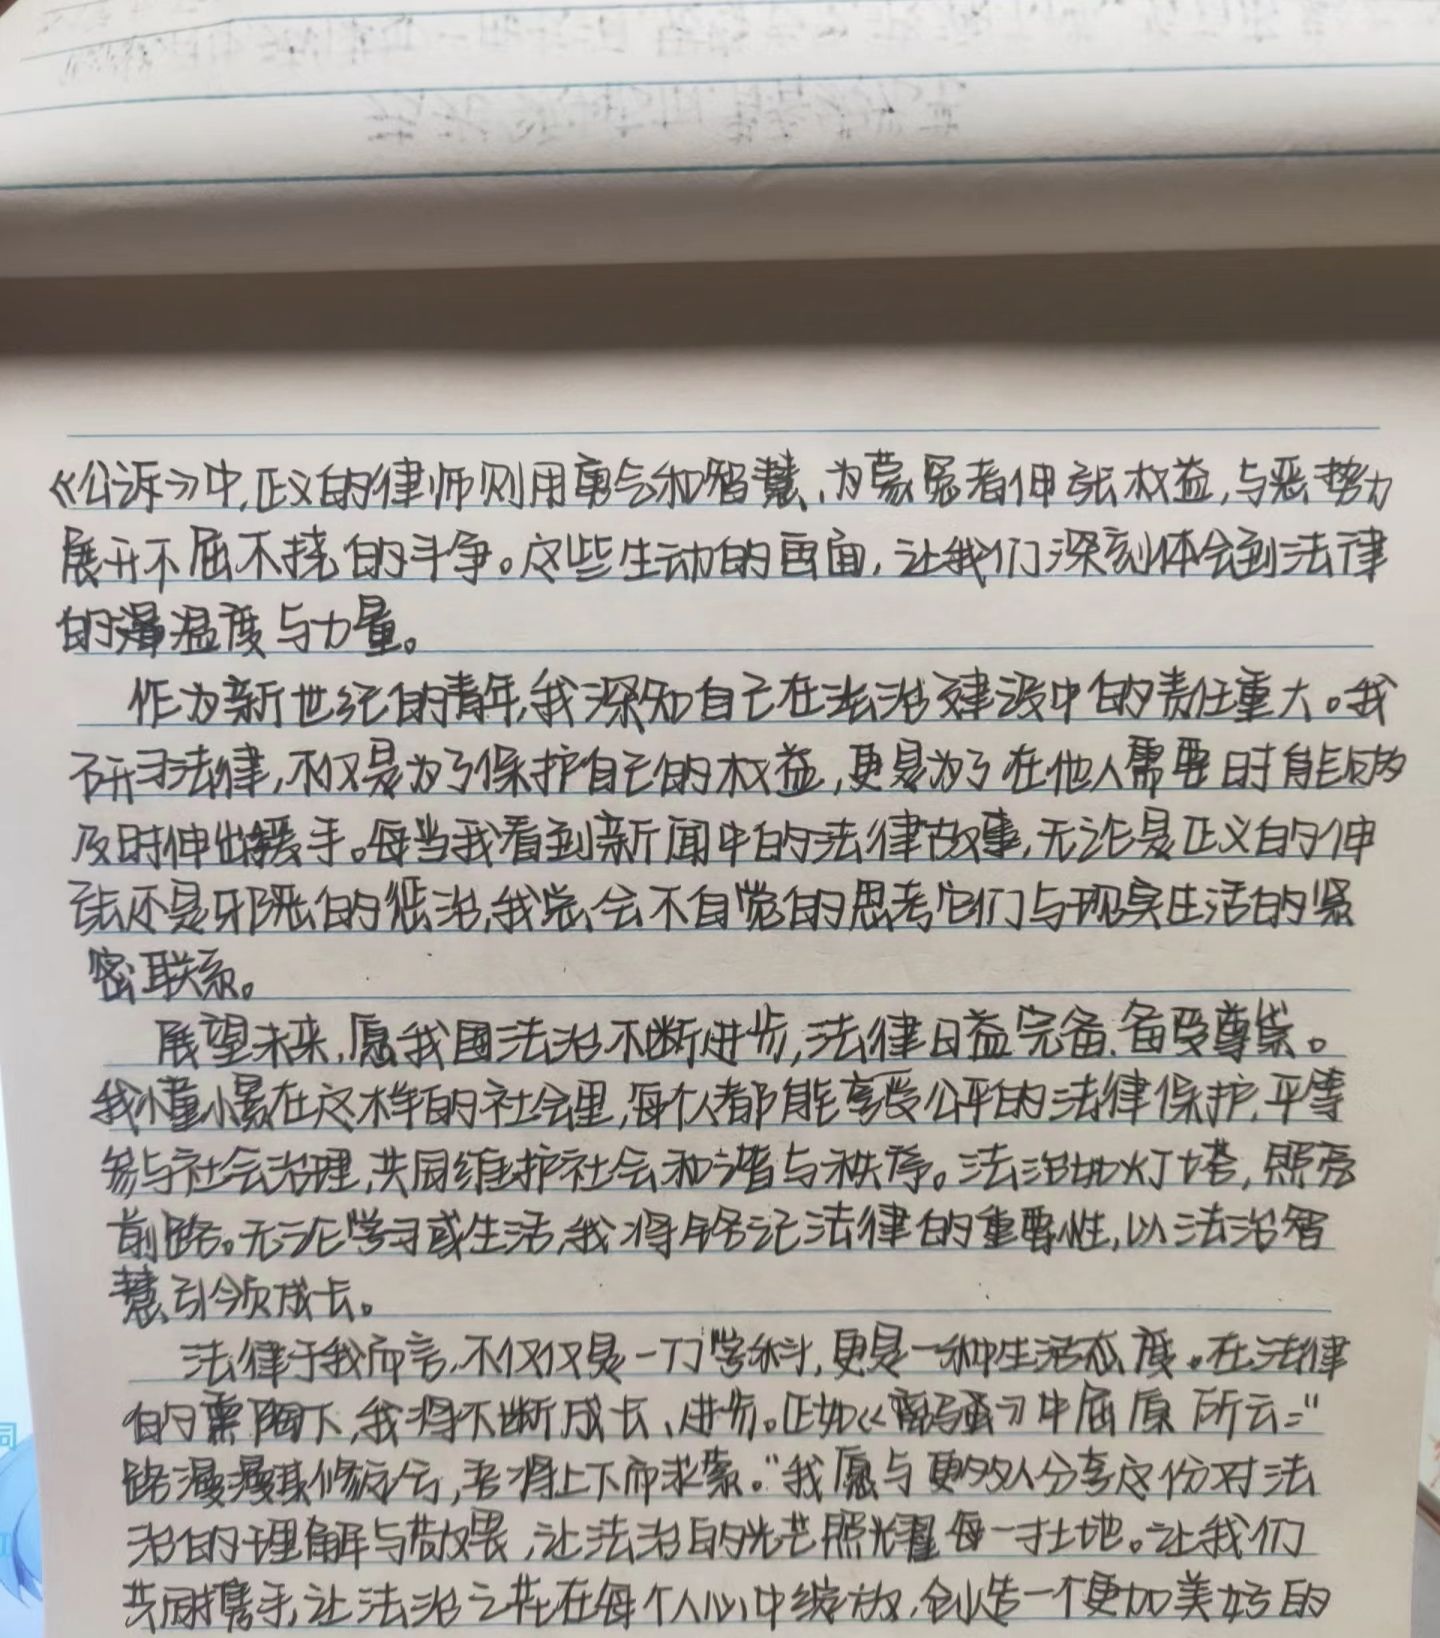 《公诉》中,正义的律师则用勇气和智慧、为蒙冤者伸张权益,与恶势力
展开不屈不挠的斗争。这些生动的画面,让我们深刻体会到法律
的温度与力量。
作为新世纪的青年,我深知自己在法治建设中的责任重大。我
研习法律,不仅是为了保护自己的权益,更是为了在他人需要时能够
及时伸出援手。每当我看到新闻中的法律故事,无论是正义的伸
张还是邪恶的惩治,我总会不自觉的思考它们与现实生活的紧
密联系。
展望未来,愿我国法治不断进步,法律日益完备、备受尊崇。
我憧憬在这样的社会里,每个人都能享受公平的法律保护,平等
参与社会治理,共同维护社会和谐与秩序。法治如灯塔,照亮
前路。无论学习或生活,我将铭记法律的重要性,以法治智
慧引领成长。
法律于我而言,不仅仅是一门学科,更是一种生活态度。在法律
的熏陶下,我将不断成长、进步。正如《离骚》中屈原所云:"
路漫漫其修远兮,吾将上下而求索。"我愿与更多人分享这份对法
治的理解与敬畏,让法治的光芒照耀每一寸土地。让我们
共同携手,让法治之花在每个人心中绽放,创造一个更加美好的